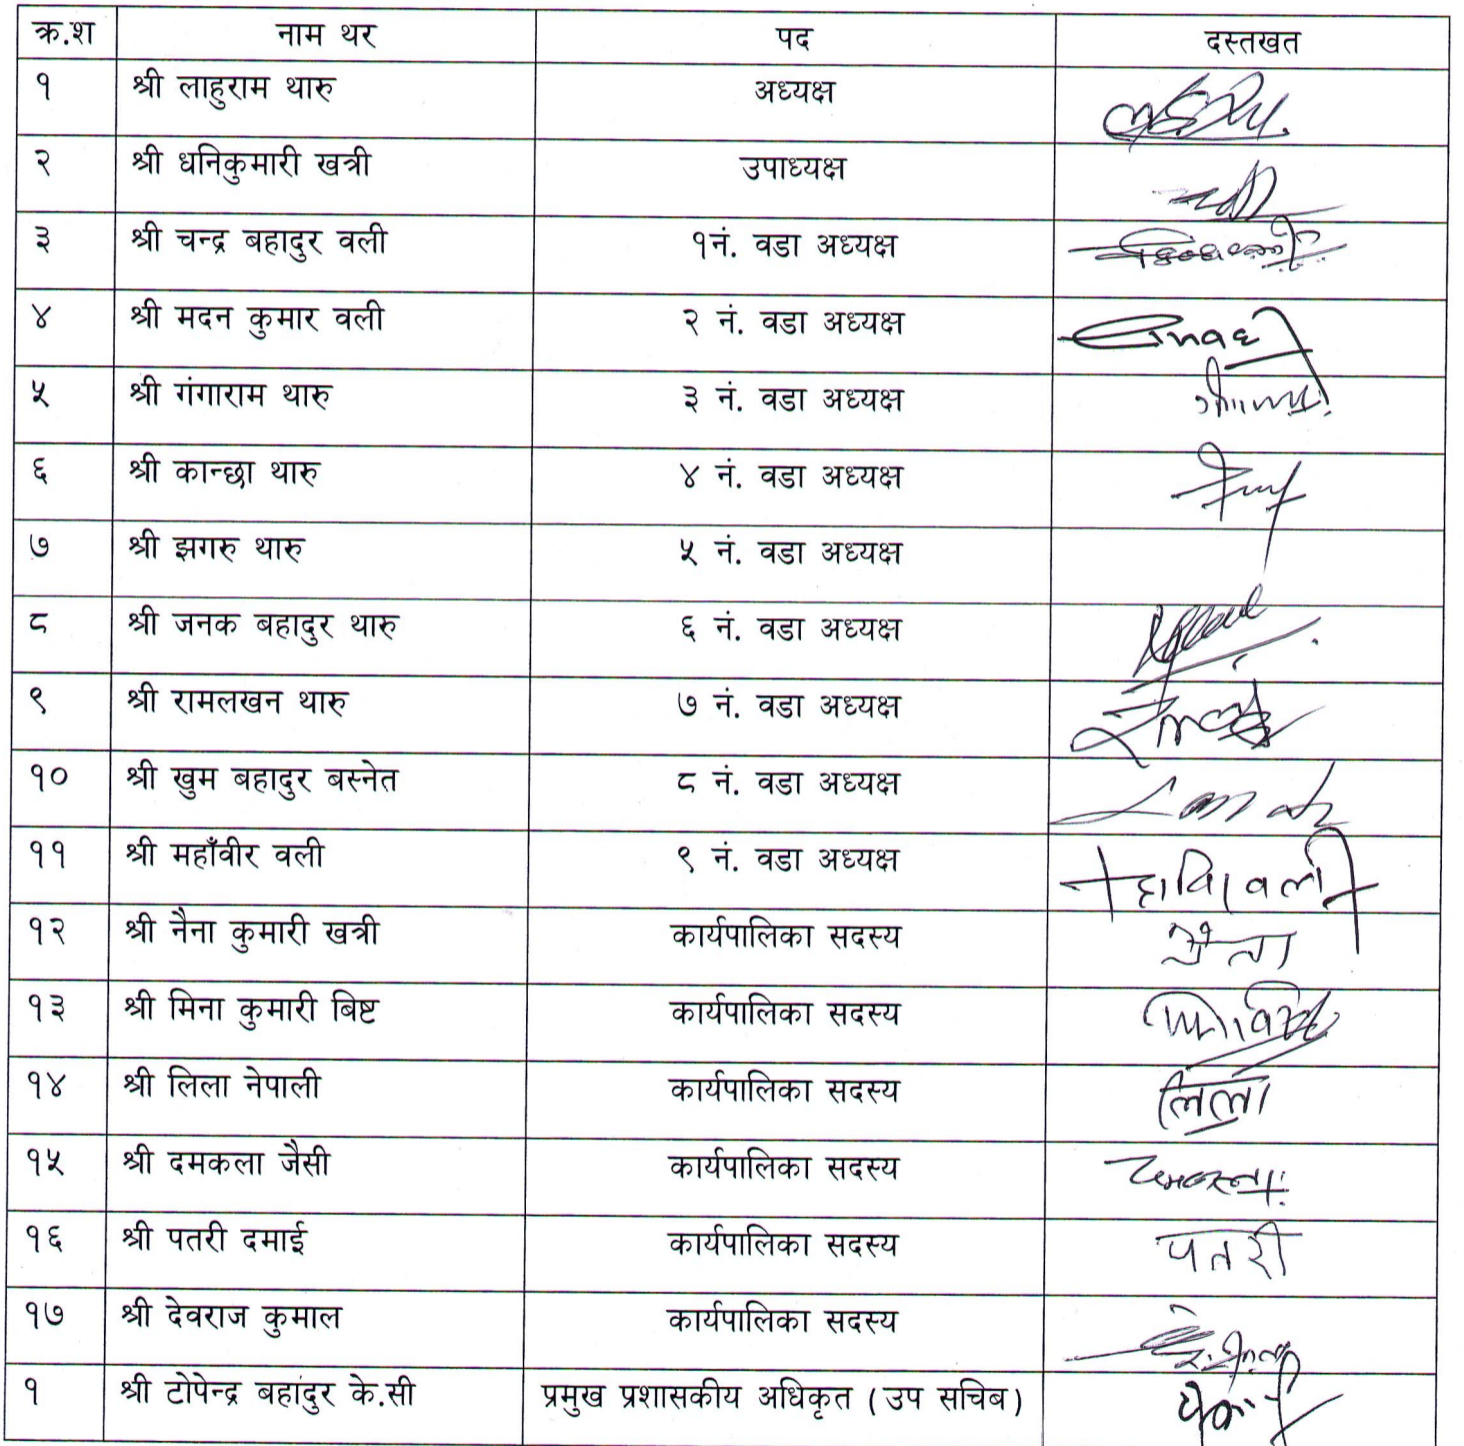 क्र.श नाम थर पद दस्तखत
१ श्री लाहुराम थारु अध्यक्ष
२ श्री धनिकुमारी खत्री उपाध्यक्ष
३ श्री चन्द्र बहादुर वली १नं. वडा अध्यक्ष
४ श्री मदन कुमार वली २ नं. वडा अध्यक्ष
५ श्री गंगाराम थारु ३ नं. वडा अध्यक्ष
६ श्री कान्छा थारु ४ नं. वडा अध्यक्ष
७ श्री झगरु थारु ५ नं. वडा अध्यक्ष
८ श्री जनक बहादुर थारु ६ नं. वडा अध्यक्ष
९ श्री रामलखन थारु ७ नं. वडा अध्यक्ष
१० श्री खुम बहादुर बस्नेत ८ नं. वडा अध्यक्ष
११ श्री महाँवीर वली ९ नं. वडा अध्यक्ष
१२ श्री नैना कुमारी खत्री कार्यपालिका सदस्य
१३ श्री मिना कुमारी बिष्ट कार्यपालिका सदस्य
१४ श्री लिला नेपाली कार्यपालिका सदस्य लिला
१५ श्री दमकला जैसी कार्यपालिका सदस्य
१६ श्री पतरी दमाई कार्यपालिका सदस्य पतरी
१७ श्री देवराज कुमाल कार्यपालिका सदस्य
१ श्री टोपेन्द्र बहादुर के.सी प्रमुख प्रशासकीय अधिकृत (उप सचिब)